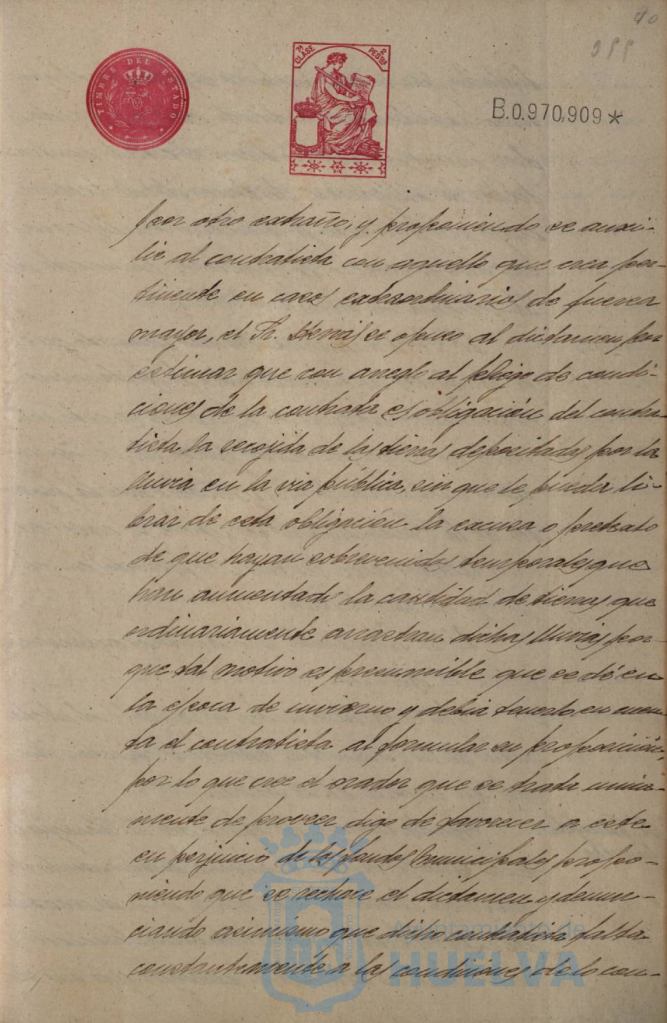 40
399
TIMBRE DEL ESTADO
7ª CLASE 2 PESETAS
B.0.970,909*
por otro extraño, y proponiendo se auxi-
lie al contratista con aquello que crea per-
tinente en casos extraordinarios de fuerza
mayor, el Sr. se opuso al dictamen por
estimar que con arreglo al pliego de condi-
ciones de la contrata es obligación del contra-
tista, la recogida de las tierras depositadas por la
lluvia en la via pública, sin que le pueda li-
brar de esta obligación la excusa o pretexto
de que hayan sobrevenido temporales que
han aumentado la cantidad de tierras que
ordinariamente arrastran dichas lluvias por-
que tal motivo es presumible que se dé en
la época de invierno y debia tenerlo en cuen-
ta el contratista al formular su proposición,
por lo que cree el orador que se trata unica-
mente de proveer digo de favorecer a este
en perjuicio de los fondos municipales propo-
niendo que se rechace el dictamen y denun-
ciando asimismo que dicho contratista falta
constantemente a las condiciones de lo con-
Ayuntamiento de
HUELVA